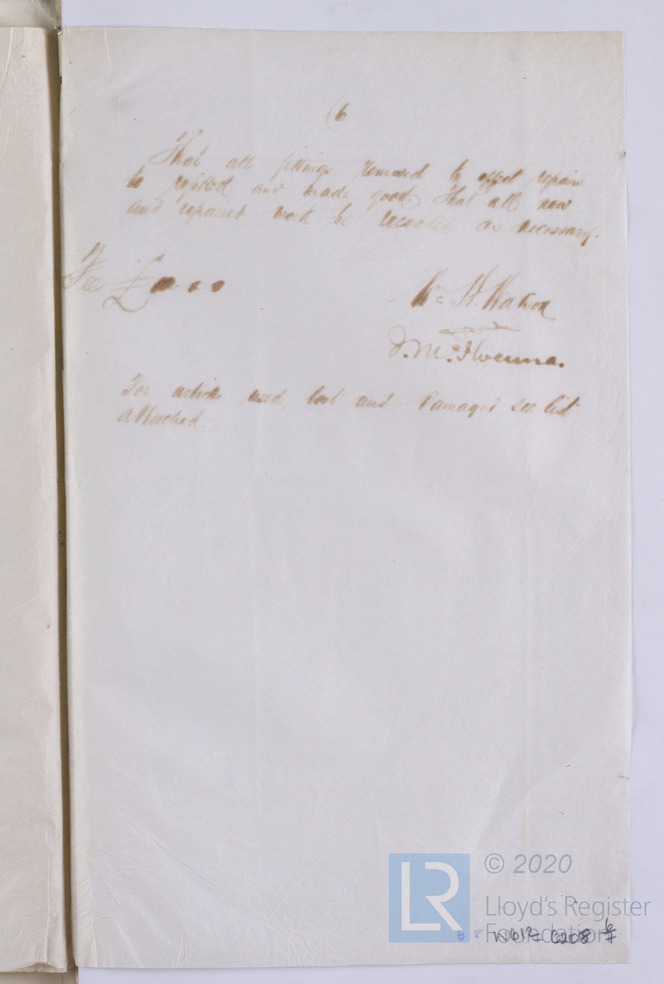 (6
That all fittings removed to effect repairs
be refitted and made good. That all new
and repaired work be recoated as necessary.
Fee £
Wm H. Watson
J. Mc
For articles used, lost and damaged see list
attached.
© 2020
LR
Lloyd's Register
Foundation